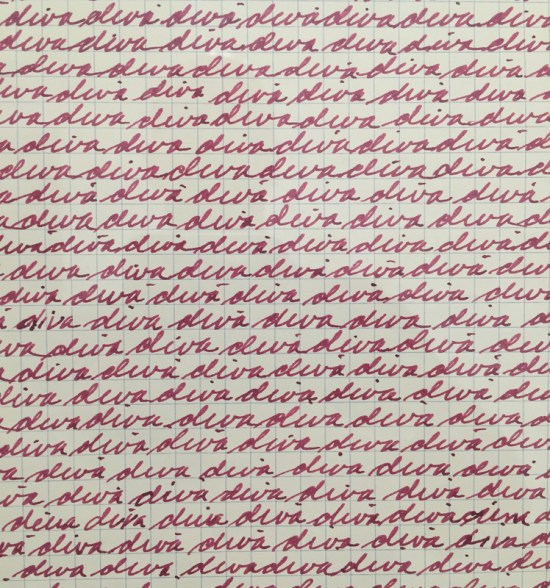 diva diva diva diva diva diva diva
diva diva diva diva diva diva diva
a diva diva diva diva diva diva di
iva diva diva diva diva diva diva d
diva diva diva diva diva diva diva
a diva diva diva diva diva diva diva
diva diva diva diva diva diva di
a diva diva diva diva diva diva
a diva diva diva diva diva diva di
iva diva diva diva diva diva diva di
diva diva diva diva diva diva diva di
a diva diva diva diva diva diva
diva diva diva diva diva diva d
va diva diva diva diva diva diva
a diva diva diva diva diva diva di
diva diva diva diva diva diva diva
diva diva diva diva diva diva di
diva diva diva diva diva diva diva
a diva diva diva diva diva diva di
va diva diva diva diva diva diva
diva diva diva diva diva diva d
va diva diva diva diva diva diva
diva diva diva diva diva diva diva
diva diva diva diva diva diva